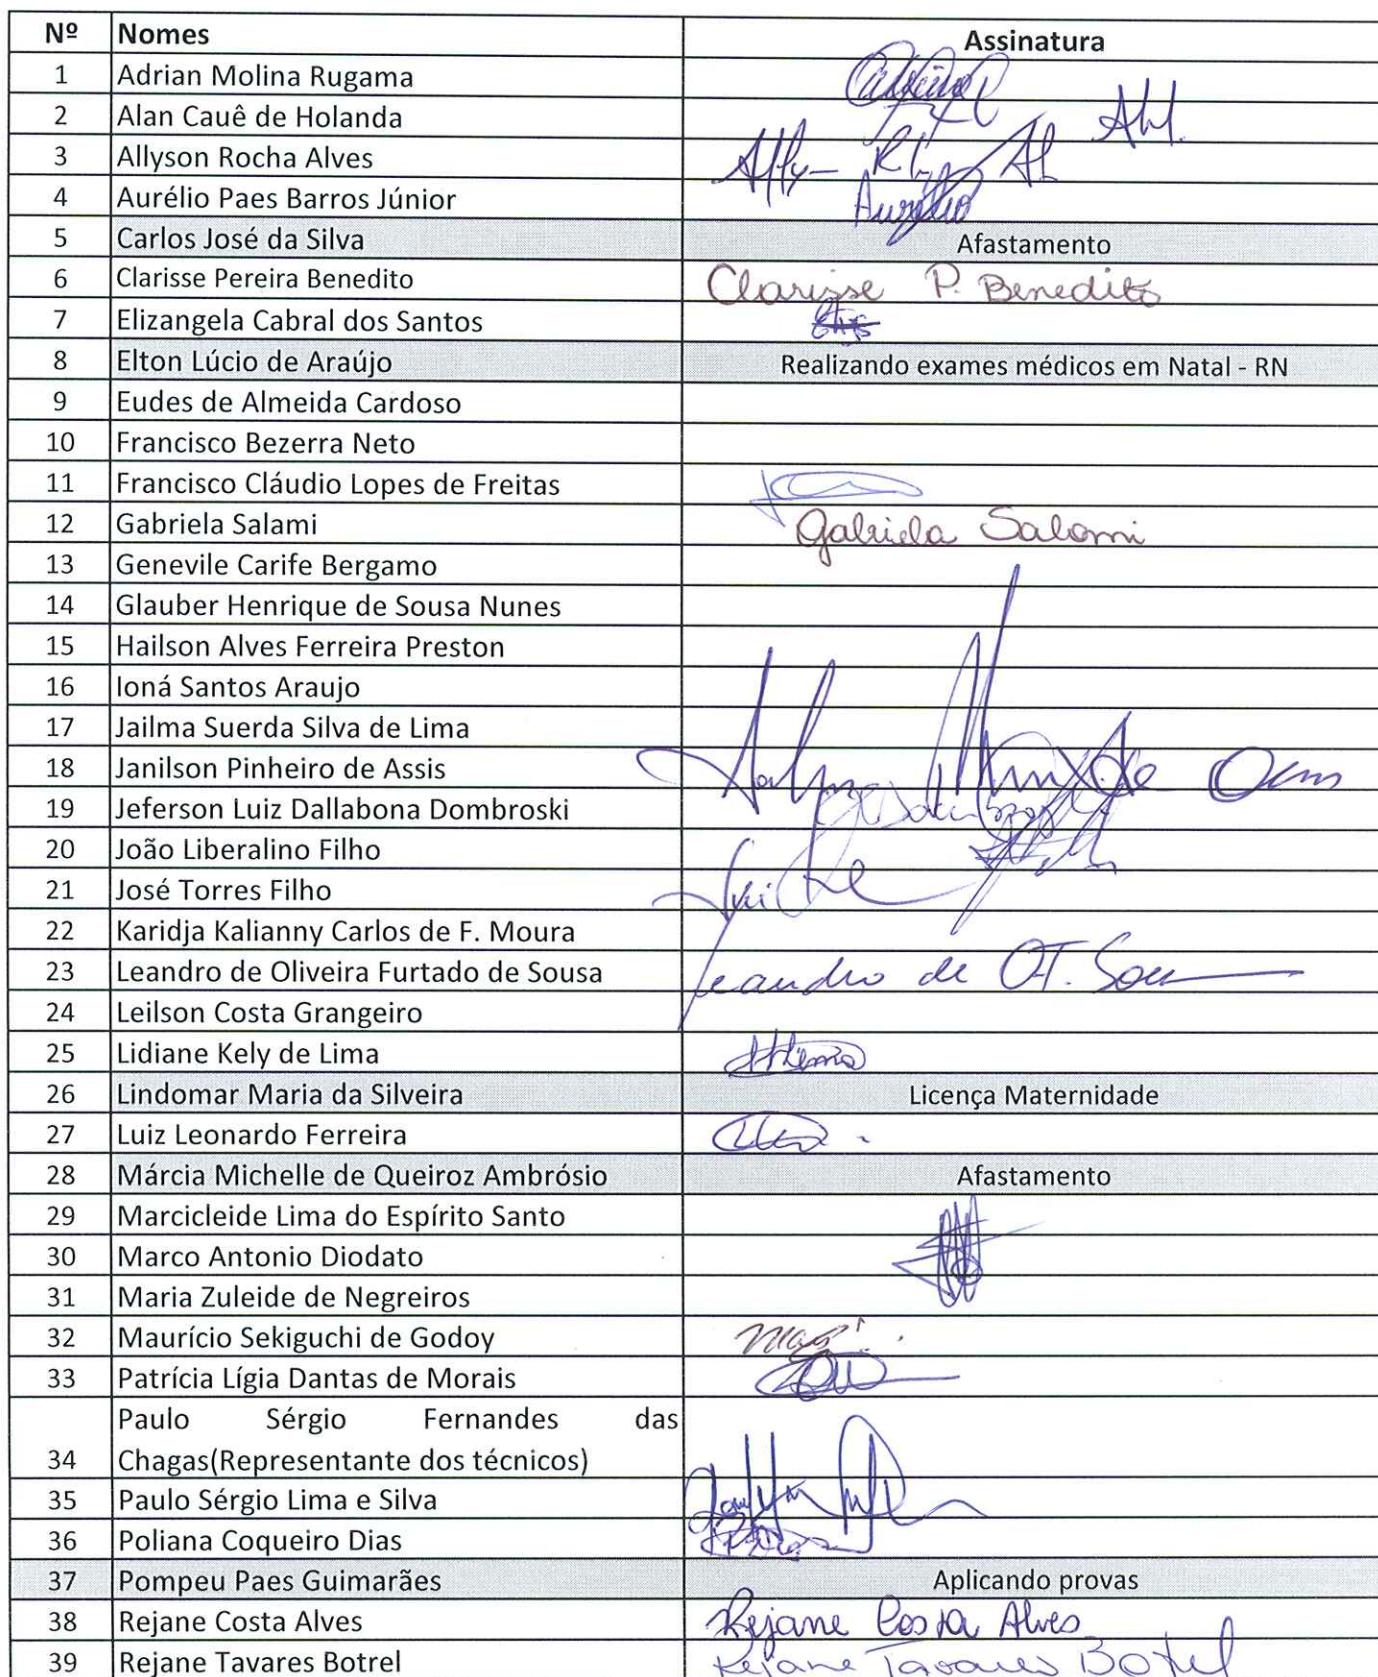 Nº Nomes Assinatura
1 Adrian Molina Rugama
2 Alan Cauê de Holanda
3 Allyson Rocha Alves
4 Aurélio Paes Barros Júnior Aurélio
5 Carlos José da Silva Afastamento
6 Clarisse Pereira Benedito Clarisse P. Benedito
7 Elizangela Cabral dos Santos
8 Elton Lúcio de Araújo Realizando exames médicos em Natal - RN
9 Eudes de Almeida Cardoso
10 Francisco Bezerra Neto
11 Francisco Cláudio Lopes de Freitas
12 Gabriela Salami Gabriela Salami
13 Genevile Carife Bergamo
14 Glauber Henrique de Sousa Nunes
15 Hailson Alves Ferreira Preston
16 Ioná Santos Araujo
17 Jailma Suerda Silva de Lima
18 Janilson Pinheiro de Assis
19 Jeferson Luiz Dallabona Dombroski
20 João Liberalino Filho
21 José Torres Filho
22 Karidja Kalianny Carlos de F. Moura
23 Leandro de Oliveira Furtado de Sousa Leandro de
24 Leilson Costa Grangeiro
25 Lidiane Kely de Lima
26 Lindomar Maria da Silveira Licença Maternidade
27 Luiz Leonardo Ferreira
28 Márcia Michelle de Queiroz Ambrósio Afastamento
29 Marcicleide Lima do Espírito Santo
30 Marco Antonio Diodato
31 Maria Zuleide de Negreiros
32 Maurício Sekiguchi de Godoy
33 Patrícia Lígia Dantas de Morais
Paulo Sérgio Fernandes das
34 Chagas(Representante dos técnicos)
35 Paulo Sérgio Lima e Silva
36 Poliana Coqueiro Dias
37 Pompeu Paes Guimarães Aplicando provas
38 Rejane Costa Alves Rejane Costa Alves
39 Rejane Tavares Botrel Rejane Tavares Botrel